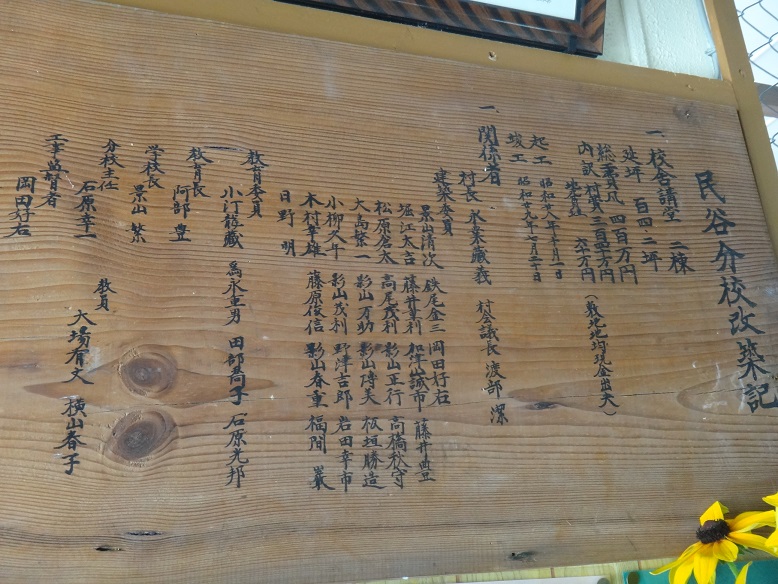 民谷分校改築記
一、校舎講堂 二棟
建坪 百四・二坪
総費用 四百万円
内訳 村費 三百四十万円
六十万円
(敷地均現金出夫)
起工 昭和廿八年十月一日
竣工 昭和廿九年七月二十日
一、関係者
村長 永桒蔵義 村会議長 渡部 潔
建築委員
景山清次 鉄尾金三 岡田好右 藤井豊
堀江太吉 藤井員利 和泉誠市
松原倉太 高尾茂利 影山正行 高橋秋守
大島泰一 影山万助 影山博美 板垣勝造
小柳久午 影山茂利 野津吉郎 岩田幸市
木村幸雄 藤原俊信 影山春重 福間 巌
日野 明
教育委員
小汀蔵 為永重男 田部喬子 石原光邦
教育長
阿部 豊
学校長
景山 繁
分校主任
石原幸一
教員
大場有文 横山春子
工事監督者
岡田好右